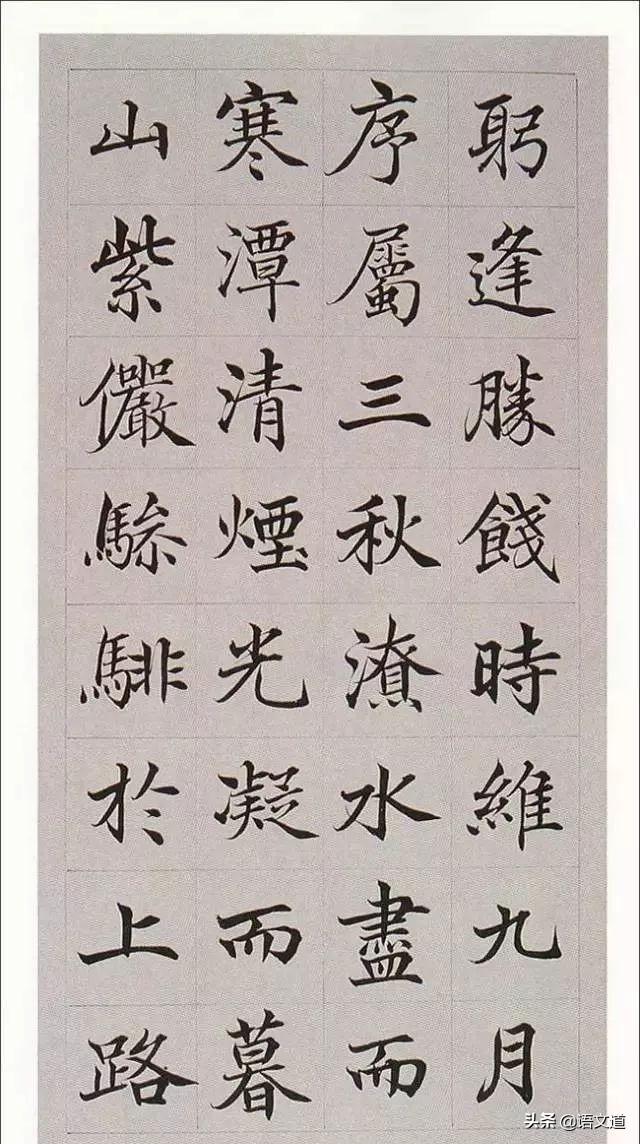 躬逢勝餞時維九月
序屬三秋潦水盡而
寒潭清煙光凝而暮
山紫儼驂騑於上路
头条 @语文道